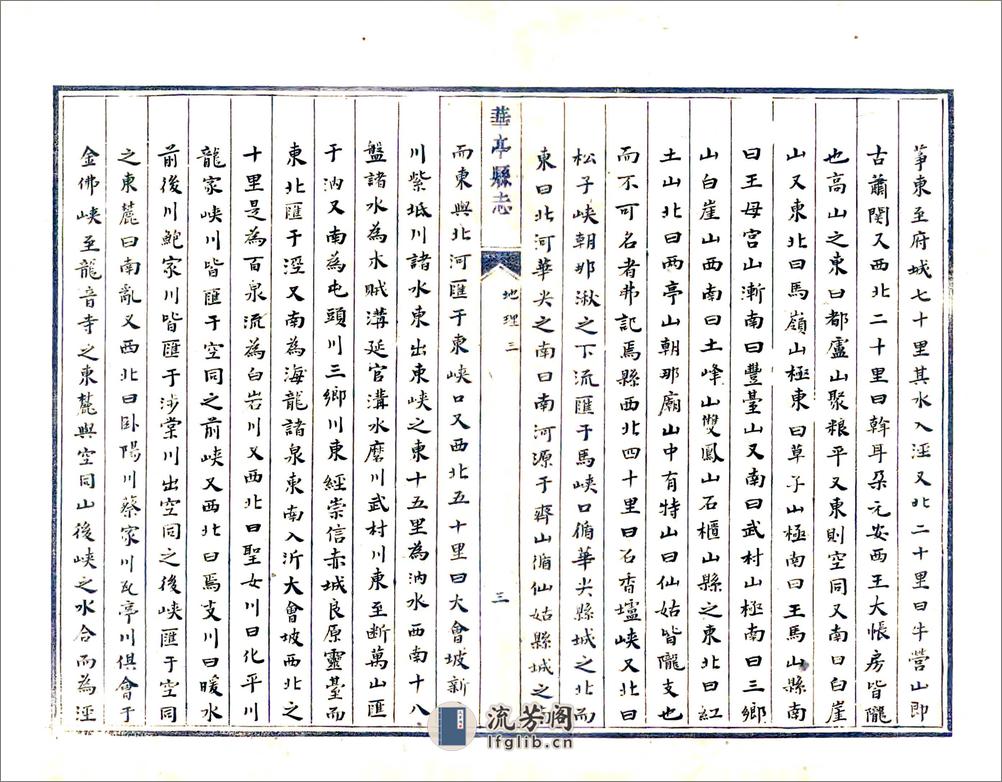 箏東至府城七十里其水入涇又北二十里曰牛營山即
古蕭関又西北二十里曰幹耳朶元安西王大帳房皆隴
也高山之東曰都盧山聚粮平又東則空同又南曰白崖
山又東北曰馬嶺山極東曰草子山極南曰王馬山縣南
曰王母宮山漸南曰豐臺山又南曰武村山極南曰三鄉
山白崖山西南曰土峰山雙鳳山石櫃山縣之東北曰紅
土山北曰西亭山朝那廟山中有特山曰仙姑皆隴支也
而不可名者弗記焉縣西北四十里曰石香爐峽又北曰
松子峽朝那湫之下流匯于馬峽口循華尖縣城之北而
東曰北河華尖之南曰南河源于齊山循仙姑縣城之
華亭縣志
地理三
三
而東與北河匯于東峽口又西北五十里曰大會坡新
川柴坻川諸水東出東峽之東十五里為汭水西南十八
盤諸水為水賊溝延官溝水磨川武村川東至断萬山匯
于汭又南為屯頭川三鄉川東經崇信赤城良原靈臺而
東北匯于涇又南為海龍諸泉東南入沂大會坡西北之
十里是為百泉流為白岩川又西北曰聖女川曰化平川
龍家峽川皆匯于空同之前峽又西北曰焉支川曰暖水
前後川鮑家川皆匯于涉棠川出空同之後峽匯于空同
之東麓曰南亂又西北曰卧陽川蔡家川瓦亭川俱會于
金佛峽至龍音寺之東麓與空同山後峽之水合而為涇
流芳阁
lfglib.cn